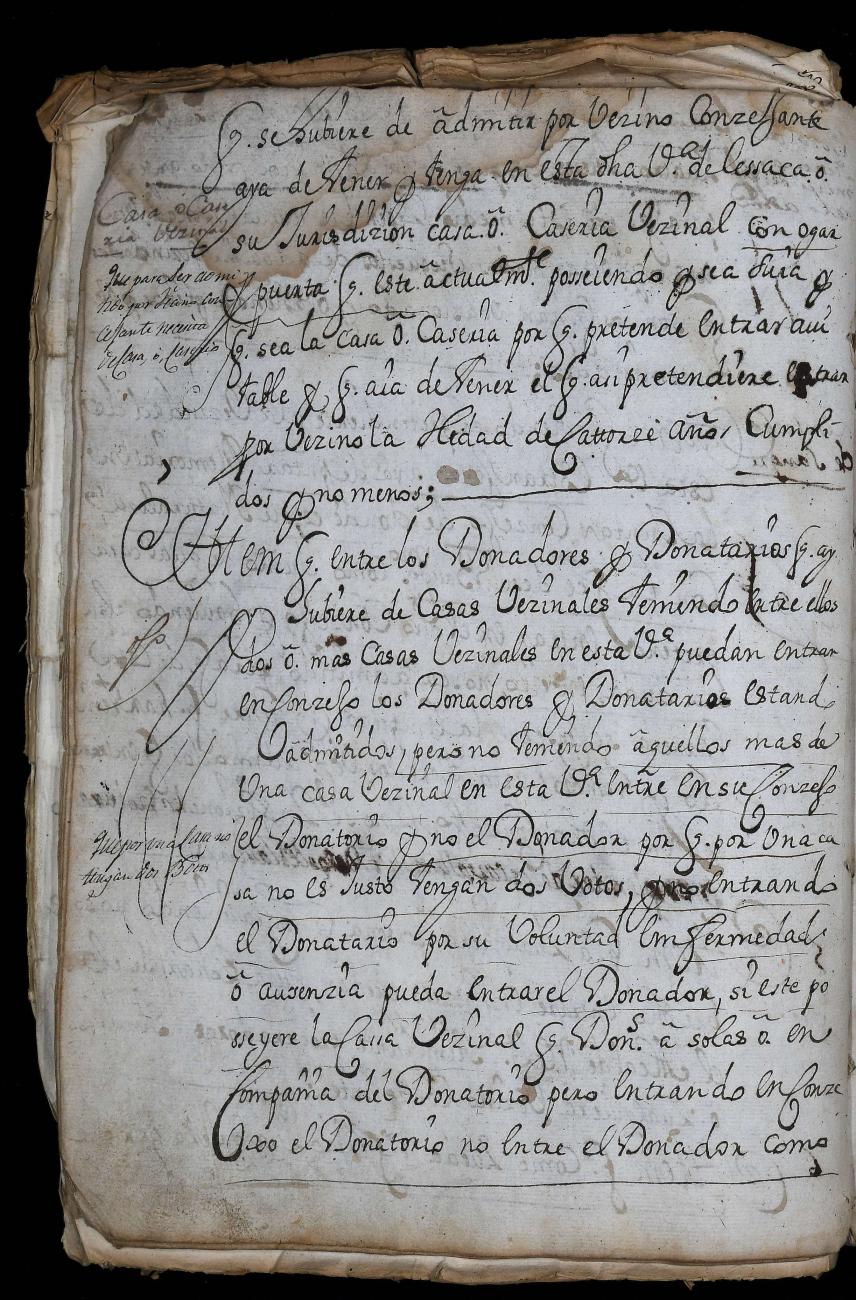 q. se hubiere de admitir por Vezino Conzessante
aya de tener y tenga en esta dha V.ª de lessaca. ô.
su Jurisdizion casa. ô. Caseria Vezinal con ogar
Casa o Case
ria Vezinal
y puerta q. este actualm.te posseiendo y sea suia y
Que para ser admi
tido por Vezino Con
cejante necesita
de Casa, o, Caserio
q. sea la casa ô. Caseria por q. pretende entrar avi
table y q. aia de tener el q. asi pretendiere entrar
por Vezino la Hedad de Cattorze años Cumpli
dos y no menos;
Ittem q. entre los Donadores y Donatarios q. ay
hubiere de Casas Vezinales teniendo entre ellos
dos ô. mas Casas Vezinales en esta V.ª puedan entrar
en Conzejo los Donadores y Donatarios estand
admitidos, pero no teniendo aquellos mas de
Una casa Vezinal en esta V.ª entre en su Conzejo
el Donatorio y no el Donador por q. por Una ca
Que por una Casa no
tengan dos Votos
sa no es Justo tengan dos Votos, y no entrando
el Donatario por su Voluntad Emfermedad
ô ausenzia pueda entrar el Donador, si este po
sseyere la Cassa Vezinal q. Don.s â solas ô. en
Compañia del Donatorio pero entrando en Conze
xo el Donatorio no entre el Donador como